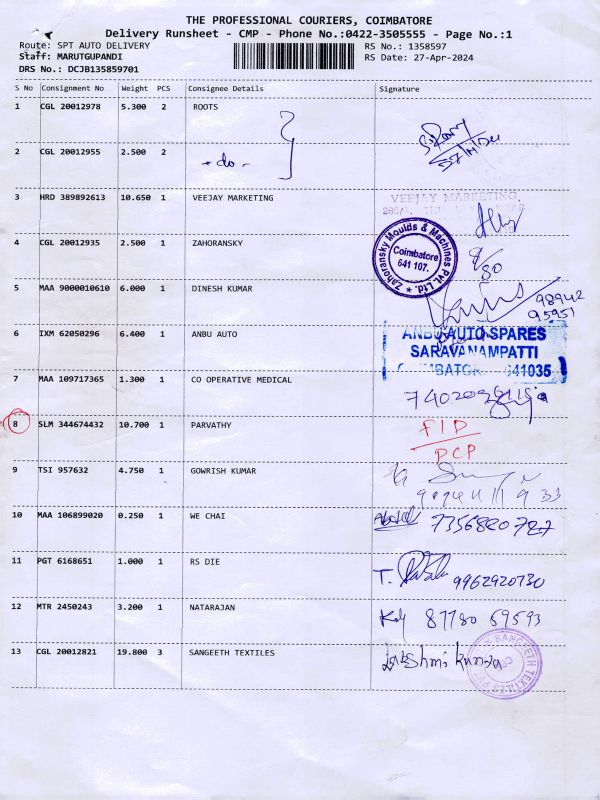 THE PROFESSIONAL COURIERS, COIMBATORE
Delivery Runsheet - CMP - Phone No.:0422-3505555 - Page No.:1
Route: SPT AUTO DELIVERY RS No.: 1358597
Staff: MARUTGUPANDI RS Date: 27-Apr-2024
DRS No.: DCJB135859701
S No Consignment No Weight PCS Consignee Details Signature
1 CGL 20012978 5.300 2 ROOTS
2 CGL 20012955 2.500 2 - do -
3 HRD 389892613 10.650 1 VEEJAY MARKETING VEEJAY MARKETING,
4 CGL 20012935 2.500 1 ZAHORANSKY Zahoransky Moulds & Machines Pvt. Ltd. * Coimbatore 641 107.
5 MAA 9000010610 6.000 1 DINESH KUMAR 98942
95951
6 IXM 62050296 6.400 1 ANBU AUTO ANBU AUTO SPARES
SARAVANAMPATTI
641035
7 MAA 109717365 1.300 1 CO OPERATIVE MEDICAL
8 SLM 344674432 10.700 1 PARVATHY FID
PCP
9 TSI 957632 4.750 1 GOWRISH KUMAR
10 MAA 106899020 0.250 1 WE CHAI 7356820727
11 PGT 6168651 1.000 1 RS DIE T. 9962920730
12 MTR 2450243 3.200 1 NATARAJAN 87780 69593
13 CGL 20012821 19.800 3 SANGEETH TEXTILES